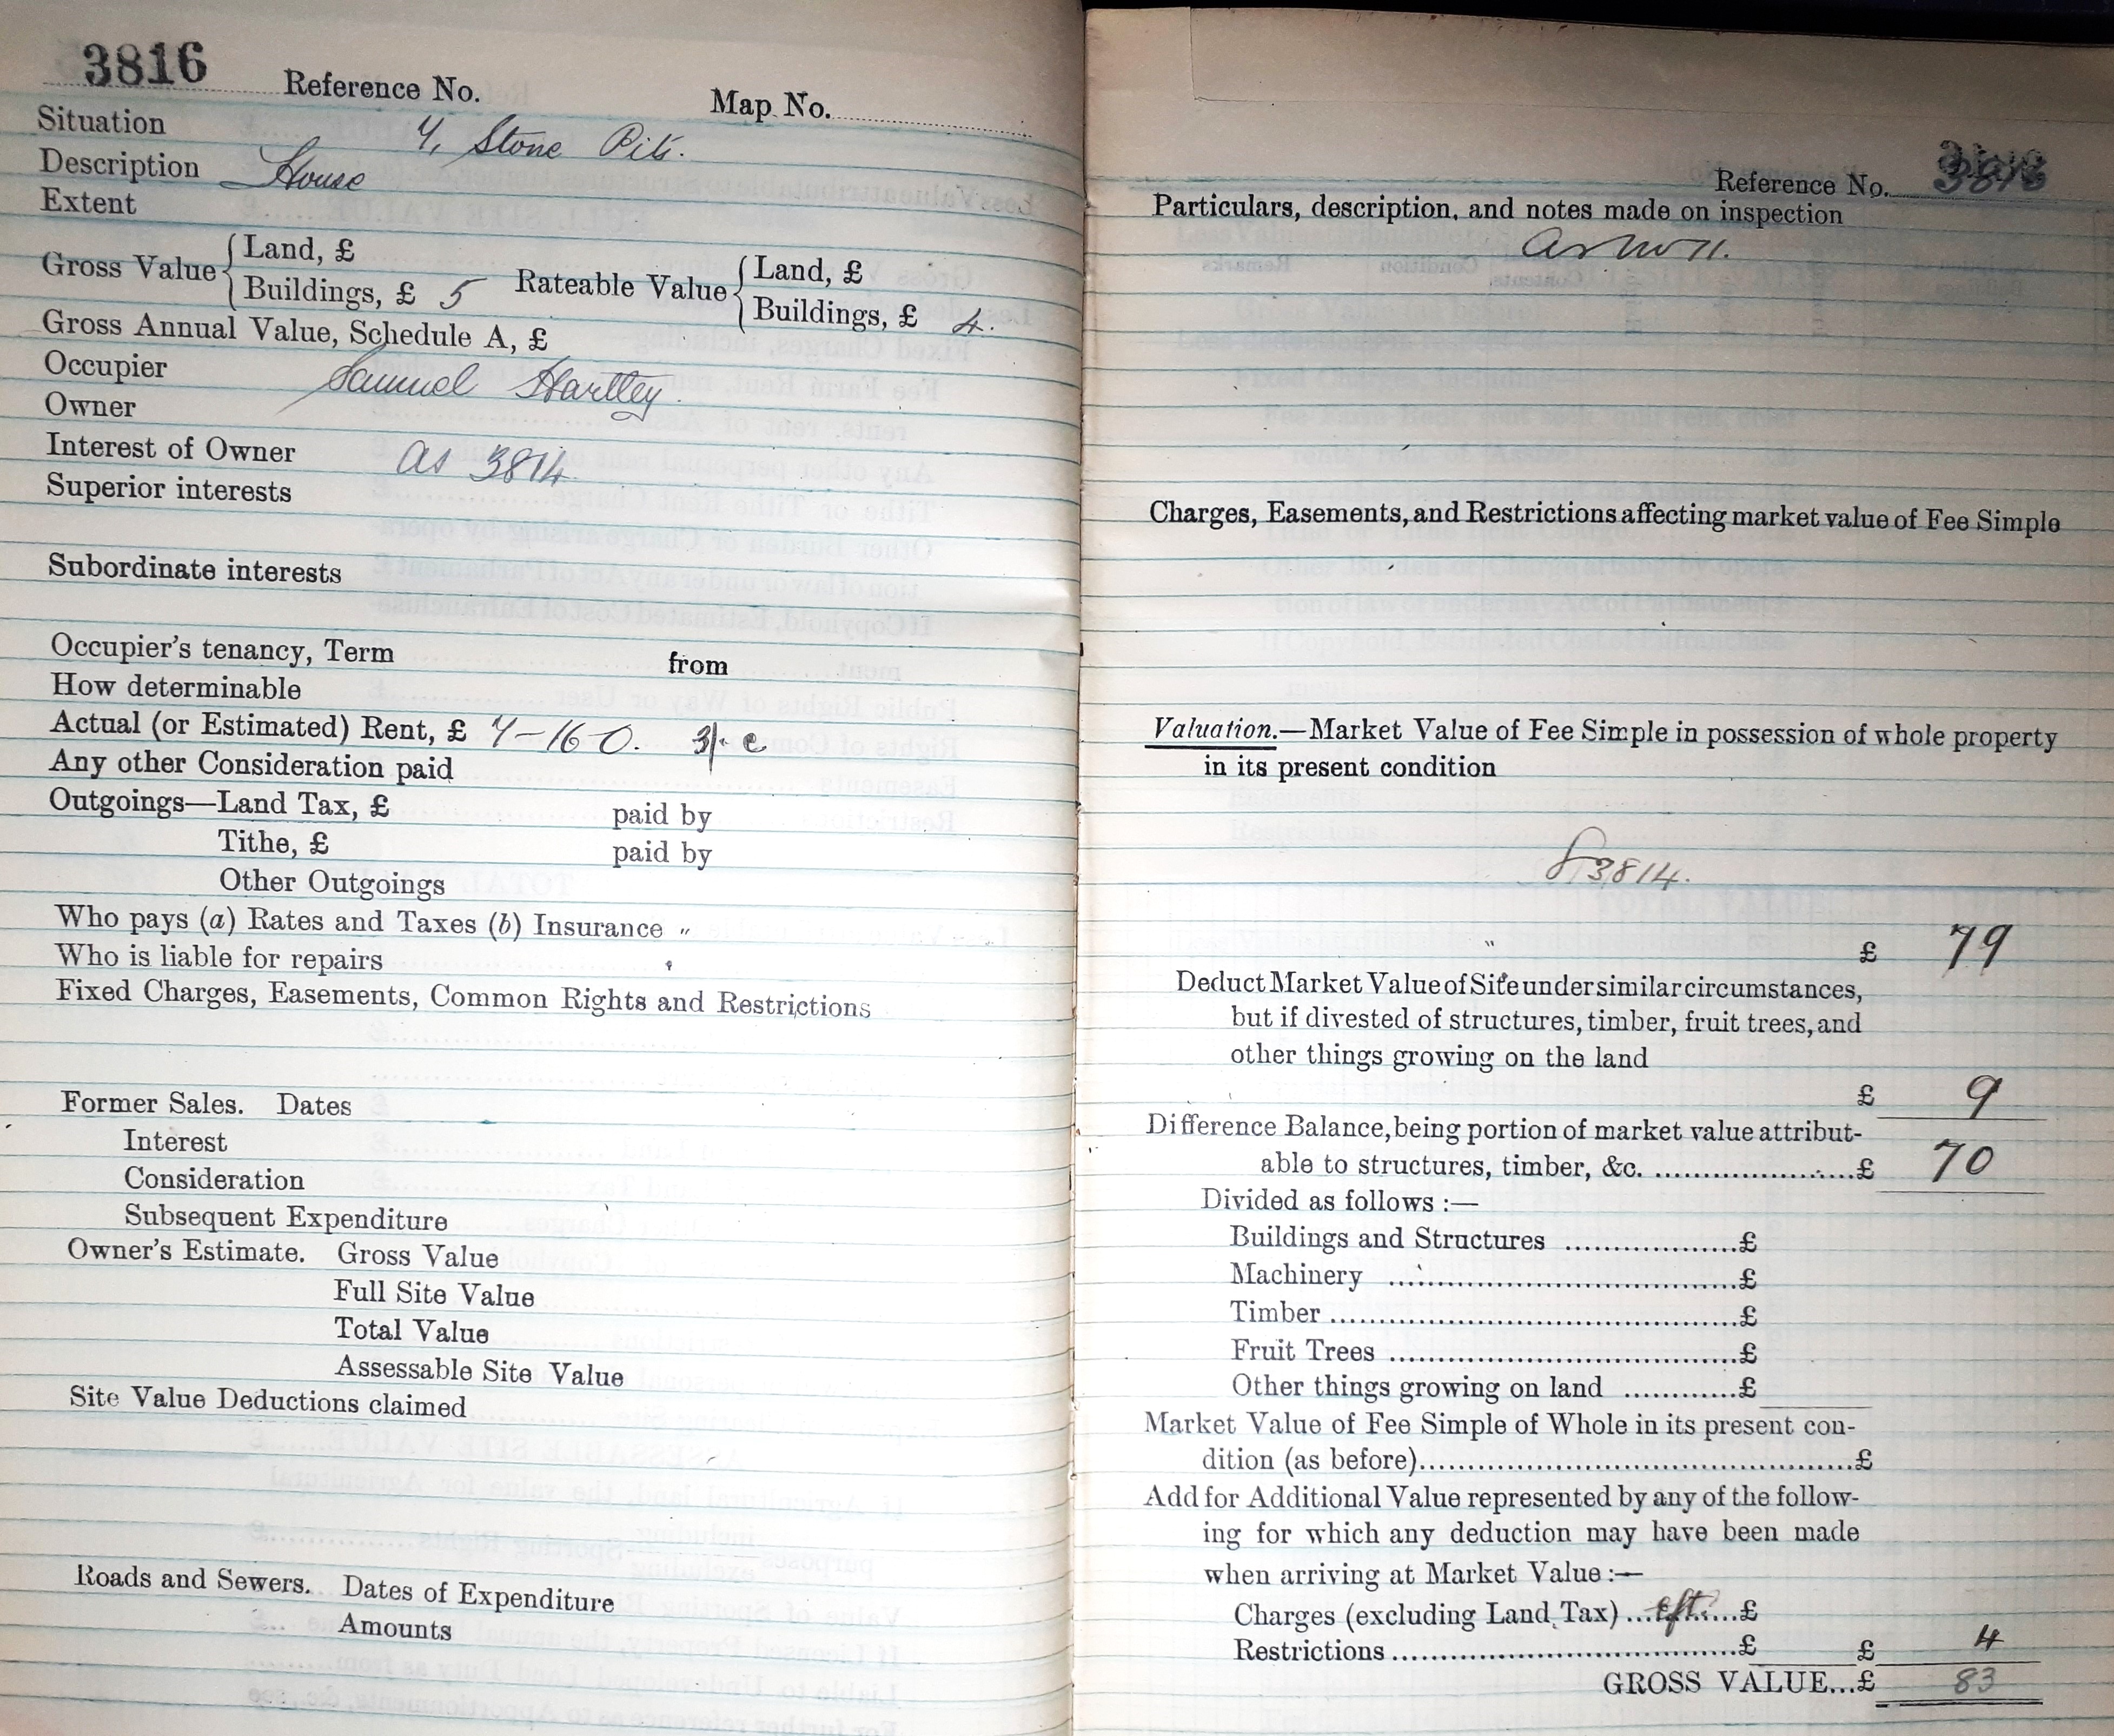 3816 Reference No. Map No.
Situation 7, Stone Pits.
Description House
Extent
Gross Value { Land, £ Rateable Value { Land, £
Buildings, £ 5 Buildings, £ 4.
Gross Annual Value, Schedule A, £
Occupier Samuel Hartley.
Owner
Interest of Owner as 3814.
Superior interests
Subordinate interests
Occupier's tenancy, Term from
How determinable
Actual (or Estimated) Rent, £ 7-16-0. 3/-
Any other Consideration paid
Outgoings—Land Tax, £ paid by
Tithe, £ paid by
Other Outgoings
Who pays (a) Rates and Taxes (b) Insurance "
Who is liable for repairs
Fixed Charges, Easements, Common Rights and Restrictions
Former Sales. Dates
Interest
Consideration
Subsequent Expenditure
Owner's Estimate. Gross Value
Full Site Value
Total Value
Assessable Site Value
Site Value Deductions claimed
Roads and Sewers. Dates of Expenditure
Amounts
Reference No.
Particulars, description, and notes made on inspection
as
Charges, Easements, and Restrictions affecting market value of Fee Simple
Valuation.—Market Value of Fee Simple in possession of whole property
in its present condition
3814.
" £ 79
Deduct Market Value of Site under similar circumstances,
but if divested of structures, timber, fruit trees, and
other things growing on the land
£ 9
Difference Balance, being portion of market value attribut-
able to structures, timber, &c. ....................£ 70
Divided as follows :—
Buildings and Structures ..................£
Machinery ..................£
Timber ..................£
Fruit Trees ..................£
Other things growing on land ............£
Market Value of Fee Simple of Whole in its present con-
dition (as before)..................£
Add for Additional Value represented by any of the follow-
ing for which any deduction may have been made
when arriving at Market Value :—
Charges (excluding Land Tax) ... £
Restrictions ..................£ £ 4
GROSS VALUE...£ 83